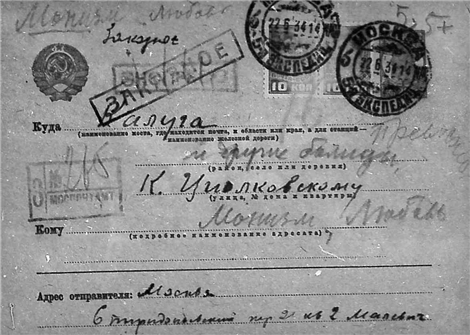 Монизм Любовь
Закрытое
ЗАКРЫТОЕ
МОСКВА
22 6 34 14
5-Я ЭКСПЕДИЦ.
МОСКВА
22 6 34 14
10 КОП
10
5+
Куда Калуга
(наименование места, где находится почта, и области или края, а для станций —
наименование железной дороги)
и другие
(район, село или деревня)
К. Циолковскому
(улица, № дома и квартиры)
№ 265
МОСПОЧТАМТ
Монизм Любовь
Кому
(подробное наименование адресата)
Адрес отправителя: Москва
пер 21 кв 2 Малевич